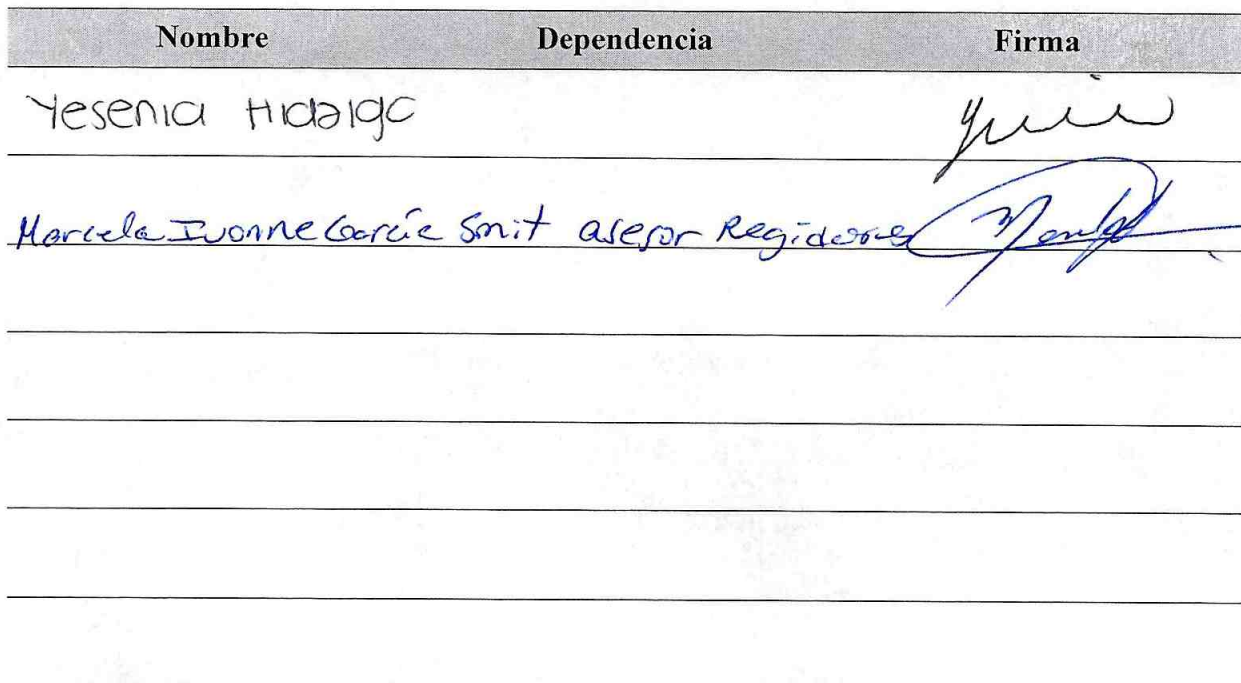 Nombre Dependencia Firma
Yesenia Hidalgo
Marcela Ivonne García Smit asesor